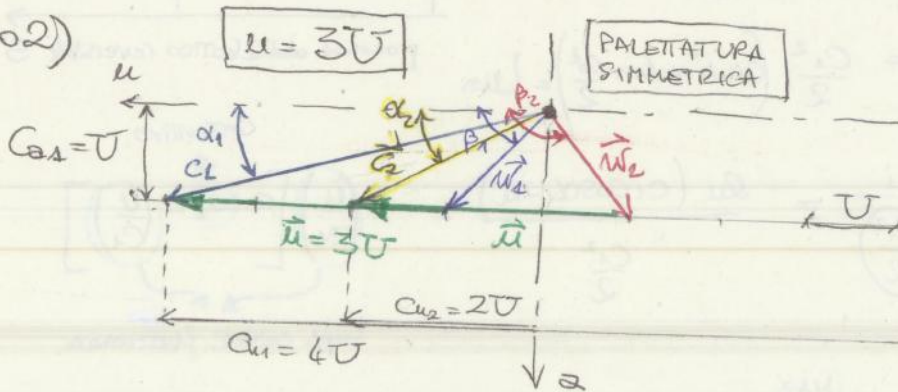 o.2)
u = 3U
PALETTATURA
SIMMETRICA
u
Ca1 = U
α1
α2
β1
β2
C1
C2
w1
w2
u = 3U
u
U
Cu2 = 2U
Cu1 = 4U
a